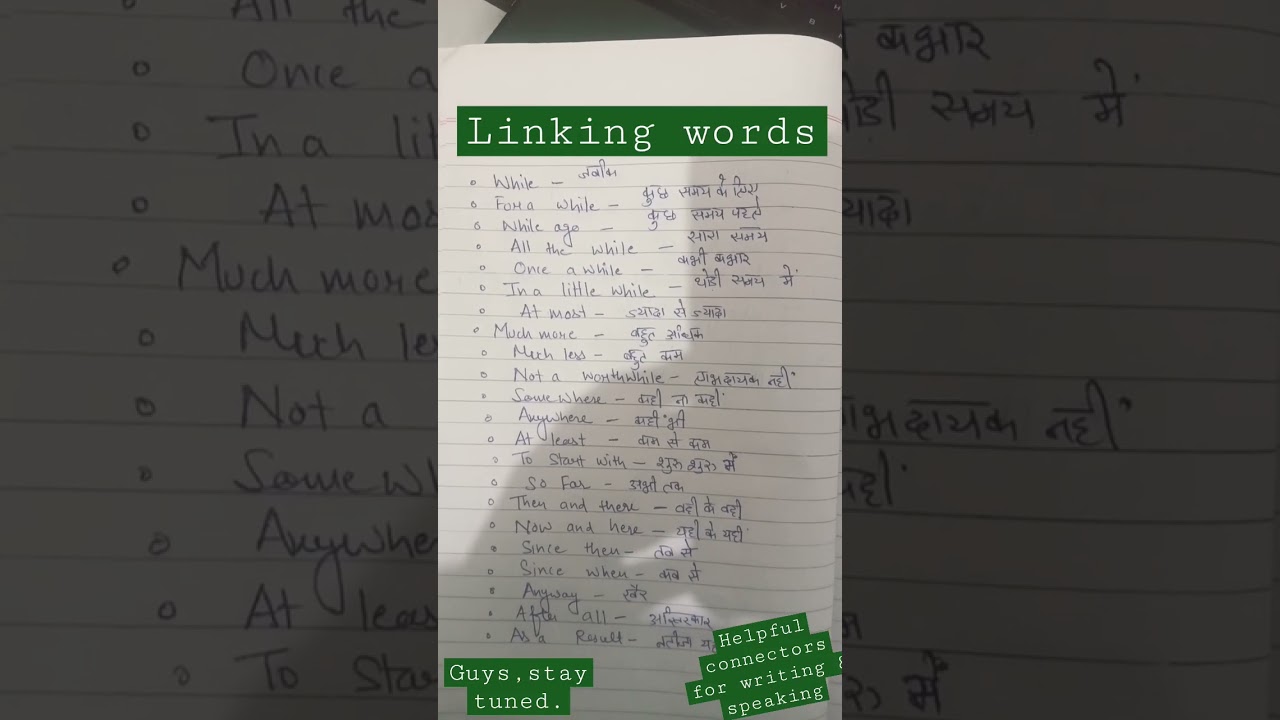 Linking words
While – जबकि
For a while – कुछ समय के लिए
While ago – कुछ समय पहले
All the while – सारा समय
Once a while – कभी कभार
In a little while – थोडी समय में
At most – ज्यादा से ज्यादा
Much more – बहुत अधिक
Much less – बहुत कम
Not a worthwhile – लाभदायक नहीं
Somewhere – कही ना कहीं
Anywhere – कहीं भी
At least – कम से कम
To Start with – शुरु शुरु में
So Far – अभी तक
Then and there – वही के वही
Now and here – यही के यहीं
Since then – तब से
Since when – कब से
Anyway – खैर
After all – आखिरकार
As a Result –
Guys,stay
tuned.
Helpful
connectors
for writing &
speaking